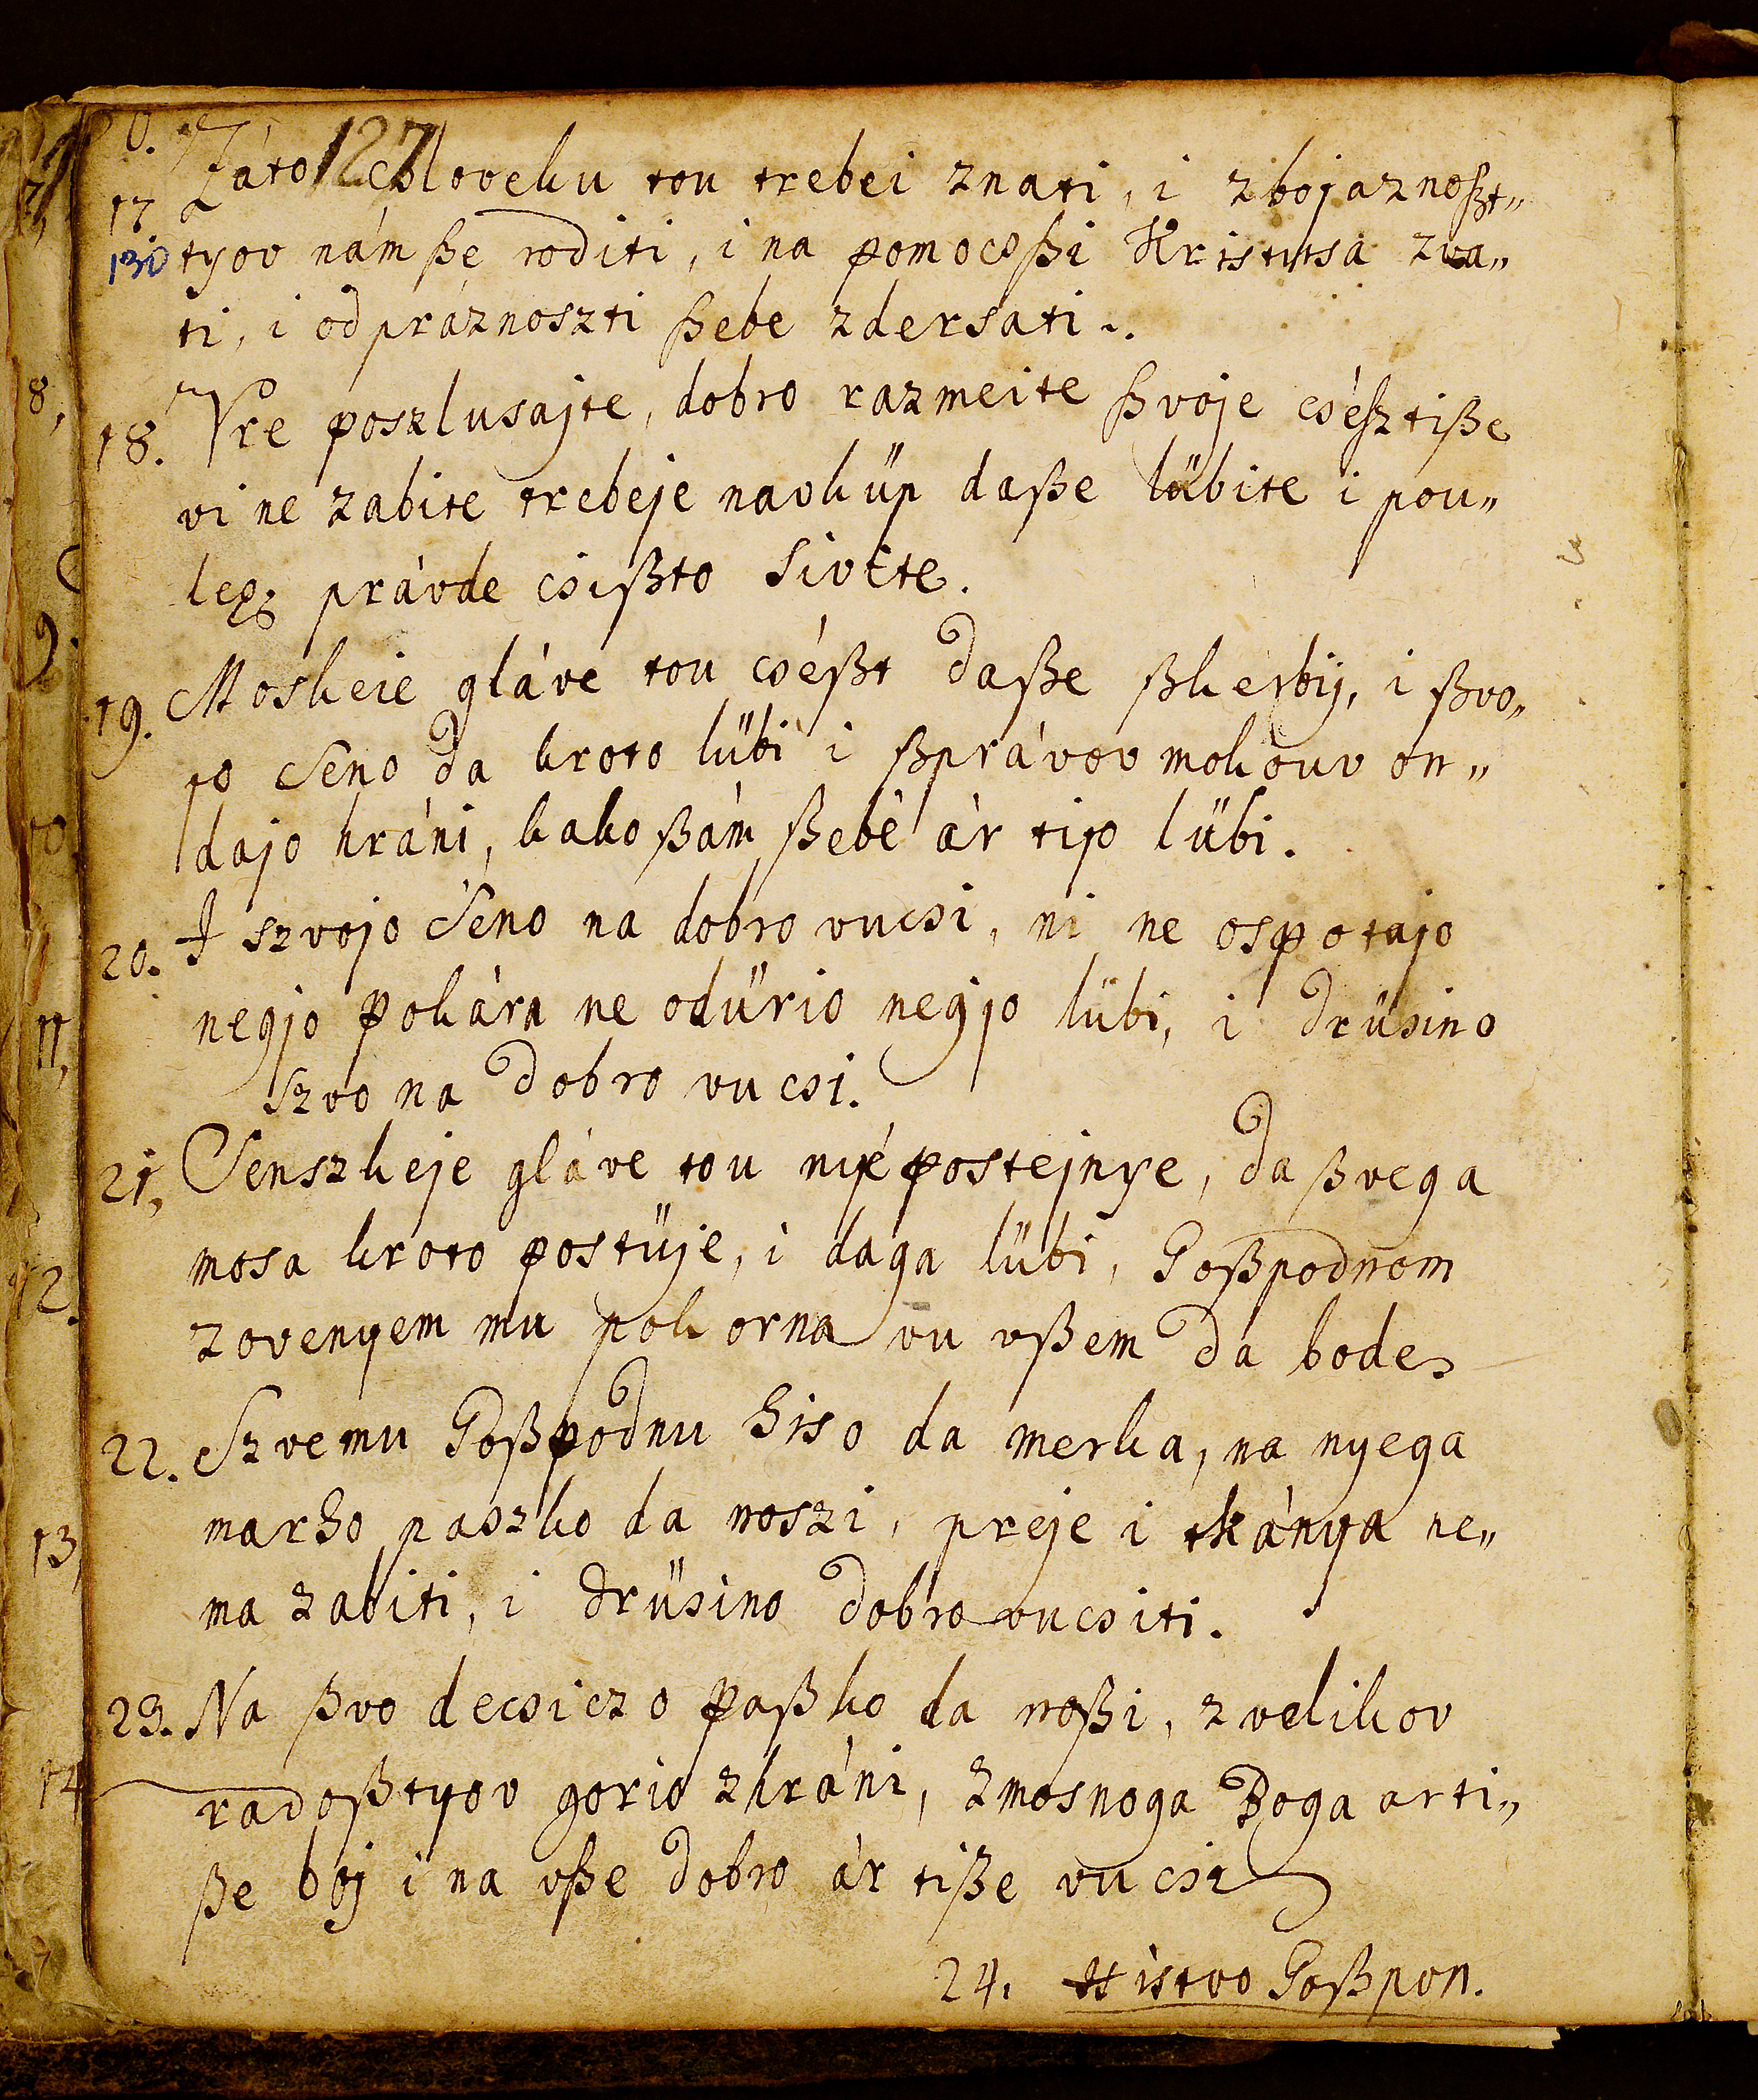 127
17 Záto csloveku tou trebei znati, i zbojaznoßt„
130 tyov nám ße roditi, i na pomocs ßi Kristusa zva„
ti, i od práznoszti ßebe zdersati.
18. Vre poszlusajte, dobro razmeite ßvoje csésztiße
vi ne zabite trebeje navküp daße lübite i pou„
leg právde csißto sivéte.
19. Moskeie gláve tou cséßt daße ßkerbij, i ßvo„
jo senó da kroto lübi i ßprávov mokouv on„
dajo hráni, kako ßám ßebé ár tijo lübi.
20. I szvojo seno na dobro vucsi, ni ne ospotajo
negjo pokára ne odürio negjo lübi, i drüsino
szvo na dobro vucsi.
21, Senszkeje gláve tou nijé postejnye, da ßvega
mosa kroto postüje, i daga lübi, Goßpodnom
zovenyem mu pokorna vu vßem da bode
22. Szvemu Goßpodnu hiso da merka, na nyega
marho paszko da noszi, preje i tkánya ne„
ma zabiti, i drüsino dobro vucsiti.
23. Na ßvo decsiczo paßko da noßi, z velikov
radoßtyov gorio zhráni, Zmosnoga Boga arti„
ße boj i na vße dobro ár tiße vucsi
24. Histvo Goßpon.
8,
9.
10.
11,
12.
13,
14